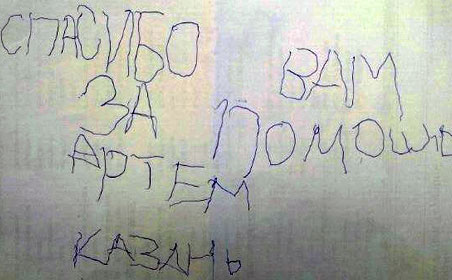 СПАСИБО ВАМ
ЗА ПОМОЩЬ
АРТЕМ
КАЗАНЬ